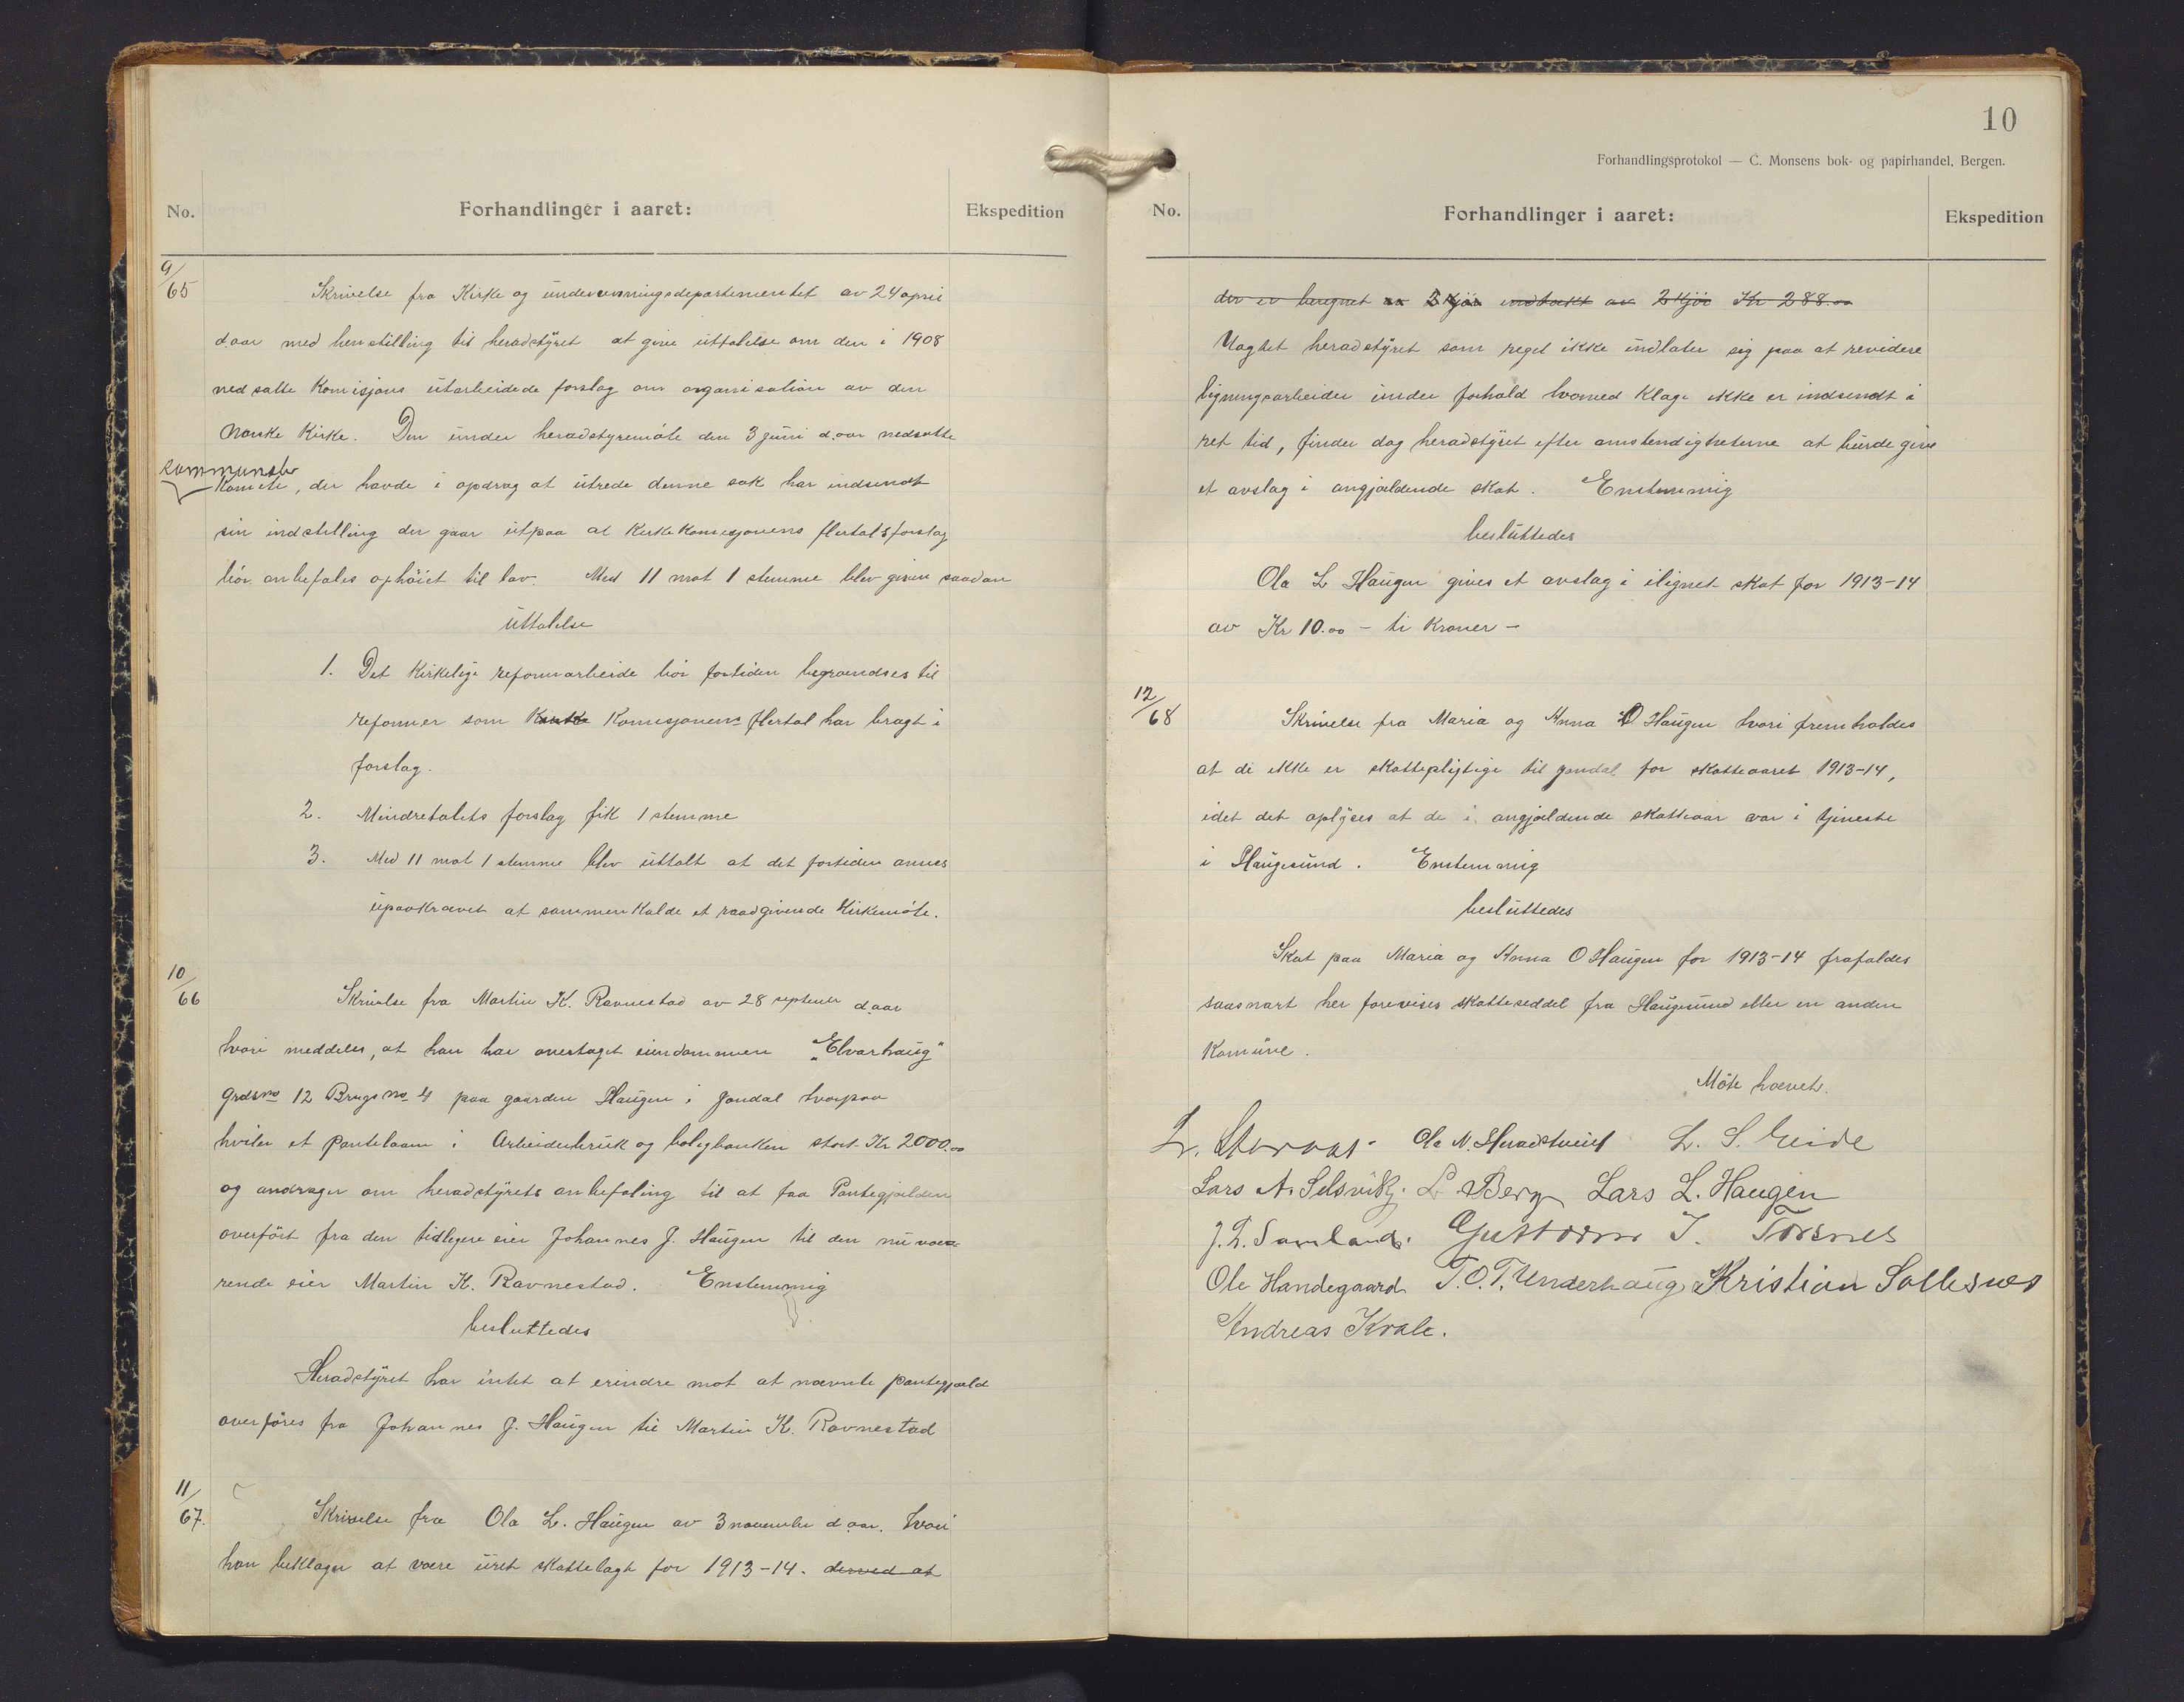 No. Forhandlinger i aaret: Ekspedition
9/65 Skrivelse fra Kirke og undervisningsdepartementet av 24 april
d.aar med henstilling til heradstyret at give uttalelse om den i 1908
nedsatte Komisjons utarbeidede forslag om organisation av den
norske Kirke. Den under heradstyremöte den 3 juni d.aar nedsatte
kommunale
Komite, der havde i opdrag at utrede denne sak har indsendt
sin indstilling der gaar utpaa at Kirkekomisjonens flertalsforslag
bör anbefales ophöiet til lov. Med 11 mot 1 stemme blev given saadan
uttalelse
1. Det Kirkelige reformarbeide bör fortiden begrændses til
reformer som Komisjonens flertal har bragt i
forslag.
2. Mindretalets forslag fik 1 stemme
3. Med 11 mot 1 stemme blev uttalt at det fortiden ansees
upaakrævet at sammenkalde et raadgivende Kirkemöte.
10/66 Skrivelse fra Martin K. Ravnestad av 28 septemer d.aar
hvori meddeles, at han har overtaget eiendommen "Elvarhaug"
Grdsno 12 Brugsno 4 paa gaarden Haugen i Jondal hvorpaa
hviler et Pantelaan i Arbeiderbruk og boligbanken stort Kr 2000.00
og andrager om heradstyrets anbefaling til at faa Pantegjælden
overfört fra den tidligere eier Johannes J. Haugen til den nuvæ-
rende eier Martin K. Ravnestad. Enstemmig
besluttedes
Heradstyret har intet at erindre mot at nævnte pantegjæld
overföres fra Johannes J. Haugen til Martin K. Ravnestad
11/67. Skrivelse fra Ola L. Haugen av 3 november d.aar. hvori
han beklager at være uret skattelagt for 1913-14. derved at
10
Forhandlingsprotokol — C. Monsens bok- og papirhandel, Bergen.
No. Forhandlinger i aaret: Ekspedition
der er beregnet indtækt av 2 kjör Kr 288.00
Uagtet heradstyret som regel ikke indlater sig paa at revidere
ligningsarbeider under forhold hvorved Klage ikke er indsendt i
ret tid, finder dog heradstyret efter omstendigheterne at burde give
et avslag i angjældende skat. Enstemmig
besluttedes
Ola L Haugen gives et avslag i ilignet skat for 1913-14
av Kr 10.00 - ti Kroner -
12/68 Skrivelse fra Maria og Anna O Haugen hvori fremholdes
at de ikke er skattepligtige til Jondal for skatteaaret 1913-14,
idet det oplyses at de i angjældende skatteaar var i tjeneste
i Haugesund. Enstemmig
besluttedes
Skat paa Maria og Anna O Haugen for 1913-14 frafaldes
saasnart her forevises skatteseddel fra Haugesund eller en anden
Komune.
Möte hævet.
L. Ola N. Heradstveit L. S. Eide
Lars A. Selsvik. L Berg Lars L. Haugen
J. L. Samland. Guttorm I. Torsnes
Ole Handegaard T.O.T. Underhaug Kristian Sollesnes
Andreas Kvale.